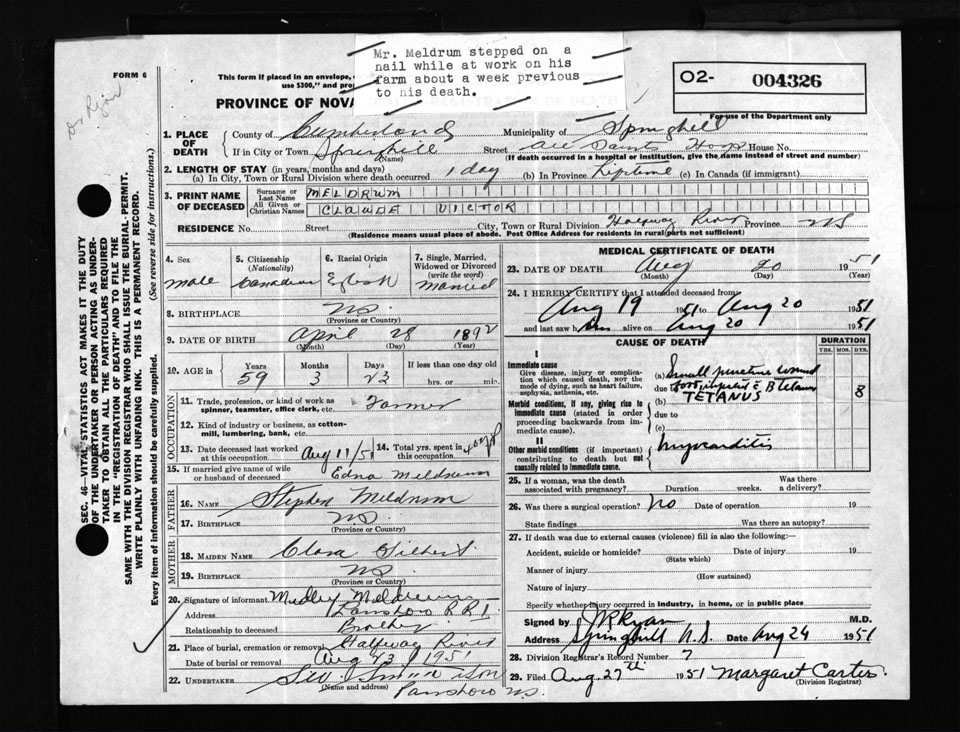 Mr. Meldrum stepped on a
nail while at work on his
farm about a week previous
to his death.
O2- 004326
For use of the Department only
FORM 6
Dr Ryan
This form if placed in an envelope,
use $300," and
PROVINCE OF NOVA
1. PLACE OF DEATH
County of Cumberland Municipality of Springhill
If in City or Town Springhill Street All Saints Hosp House No.
(Name) (If death occurred in a hospital or institution, give the name instead of street and number)
2. LENGTH OF STAY (in years, months and days)
(a) In City, Town or Rural Division where death occurred 1 day (b) In Province Liftime (c) In Canada (if immigrant)
3. PRINT NAME OF DECEASED
Surname or Last Name MELDRUM
All Given or Christian Names CLAUDE VICTOR
RESIDENCE No. Street City, Town or Rural Division Halfway River Province NS
(Residence means usual place of abode. Post Office Address for residents in rural parts not sufficient)
4. Sex male
5. Citizenship (Nationality) Canadian
6. Racial Origin English
7. Single, Married, Widowed or Divorced (write the word) Married
8. BIRTHPLACE N.S.
(Province or Country)
9. DATE OF BIRTH April 28 1892
(Month) (Day) (Year)
10. AGE in Years 59 Months 3 Days 23 If less than one day old
hrs. or min.
OCCUPATION
11. Trade, profession, or kind of work as spinner, teamster, office clerk, etc. Farmer
12. Kind of industry or business, as cotton-mill, lumbering, bank, etc.
13. Date deceased last worked at this occupation Aug 11/51
14. Total yrs. spent in this occupation
15. If married give name of wife or husband of deceased Edna Meldrum
FATHER
16. NAME Stephen Meldrum
17. BIRTHPLACE N.S.
(Province or Country)
MOTHER
18. MAIDEN NAME Clara Gilbert
19. BIRTHPLACE NS
(Province or Country)
20. Signature of informant Medley Meldrum
Address Parrsboro R.R.1
Relationship to deceased Brother
21. Place of burial, cremation or removal Halfway River
Date of burial or removal Aug 23 1951
22. UNDERTAKER
(Name and address)
Parrsboro N.S.
MEDICAL CERTIFICATE OF DEATH
23. DATE OF DEATH Aug 20 1951
(Month) (Day) (Year)
24. I HEREBY CERTIFY that I attended deceased from
Aug 19 1951 to Aug 20 1951
and last saw him alive on Aug 20 1951
CAUSE OF DEATH
DURATION
YRS. MOS. DYS.
I
Immediate cause
Give disease, injury or complication which caused death, not the mode of dying, such as heart failure, asphyxia, asthenia, etc.
(a) Small puncture wound
due to foot, infected c B tetani
(b) TETANUS 8
Morbid conditions, if any, giving rise to immediate cause (stated in order proceeding backwards from immediate cause).
due to
(c)
II
Other morbid conditions (if important) contributing to death but not causally related to immediate cause.
Myocarditis
25. If a woman, was the death associated with pregnancy? Duration weeks. Was there a delivery?
26. Was there a surgical operation? No Date of operation 19
State findings Was there an autopsy?
27. If death was due to external causes (violence) fill in also the following:—
Accident, suicide or homicide? Date of injury 19
(State which)
Manner of injury
(How sustained)
Nature of injury
Specify whether injury occurred in industry, in home, or in public place
Signed by JR Ryan M.D.
Address Springhill N.S. Date Aug 24 1951
28. Division Registrar's Record Number 7
29. Filed Aug. 27th 1951 Margaret Carter
(Division Registrar)
SEC. 46—VITAL STATISTICS ACT MAKES IT THE DUTY
OF THE UNDERTAKER OR PERSON ACTING AS UNDER-
TAKER TO OBTAIN ALL THE PARTICULARS REQUIRED
IN THE "REGISTRATION OF DEATH" AND TO FILE THE
SAME WITH THE DIVISION REGISTRAR WHO SHALL ISSUE THE BURIAL-PERMIT.
WRITE PLAINLY WITH UNFADING INK. THIS IS A PERMANENT RECORD.
Every item of information should be carefully supplied. (See reverse side for instructions.)